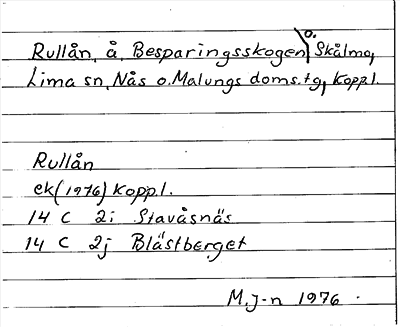 Rullån, å, Besparingsskogen o. Skålmo,
Lima sn, Nås o. Malungs doms.tg, Kopp.l.
Rullån
ek (1976) Kopp.l.
14 C 2i Stavåsnäs
14 C 2j Blästberget
M.J-n 1976.